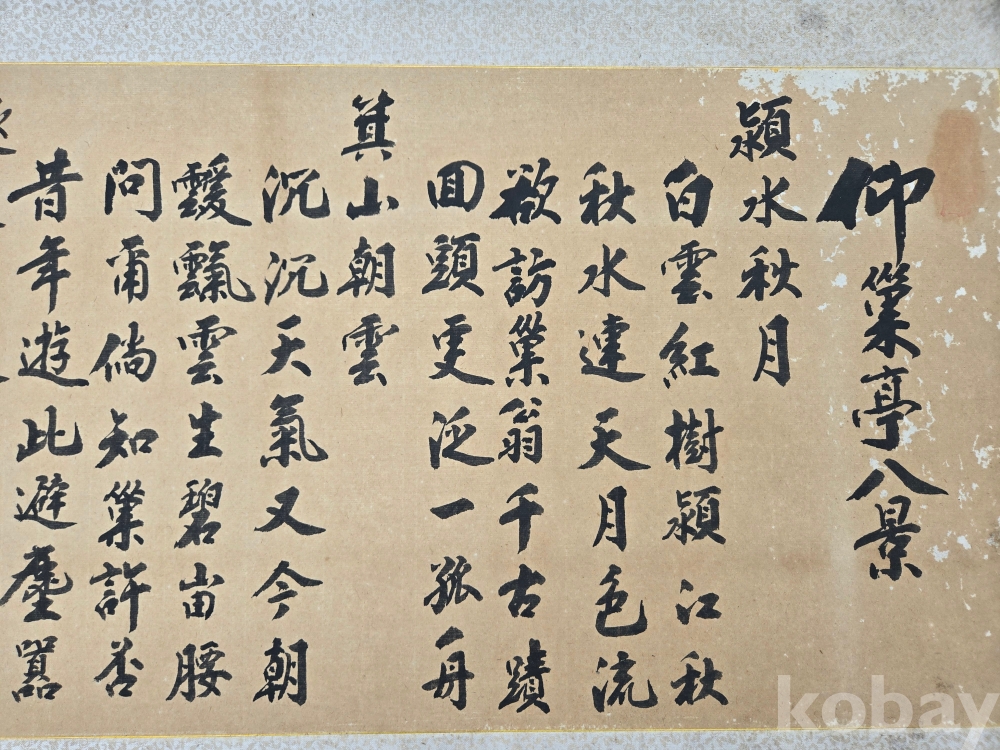 仰巢亭八景
潁水秋月
白雲紅樹潁江秋
秋水連天月色流
欲訪巢翁千古蹟
回頭更泛一孤舟
箕山朝雲
沉沉天氣又今朝
靉雲生碧峀腰
問甯倘知巢許否
昔年遊此避塵囂
kobay